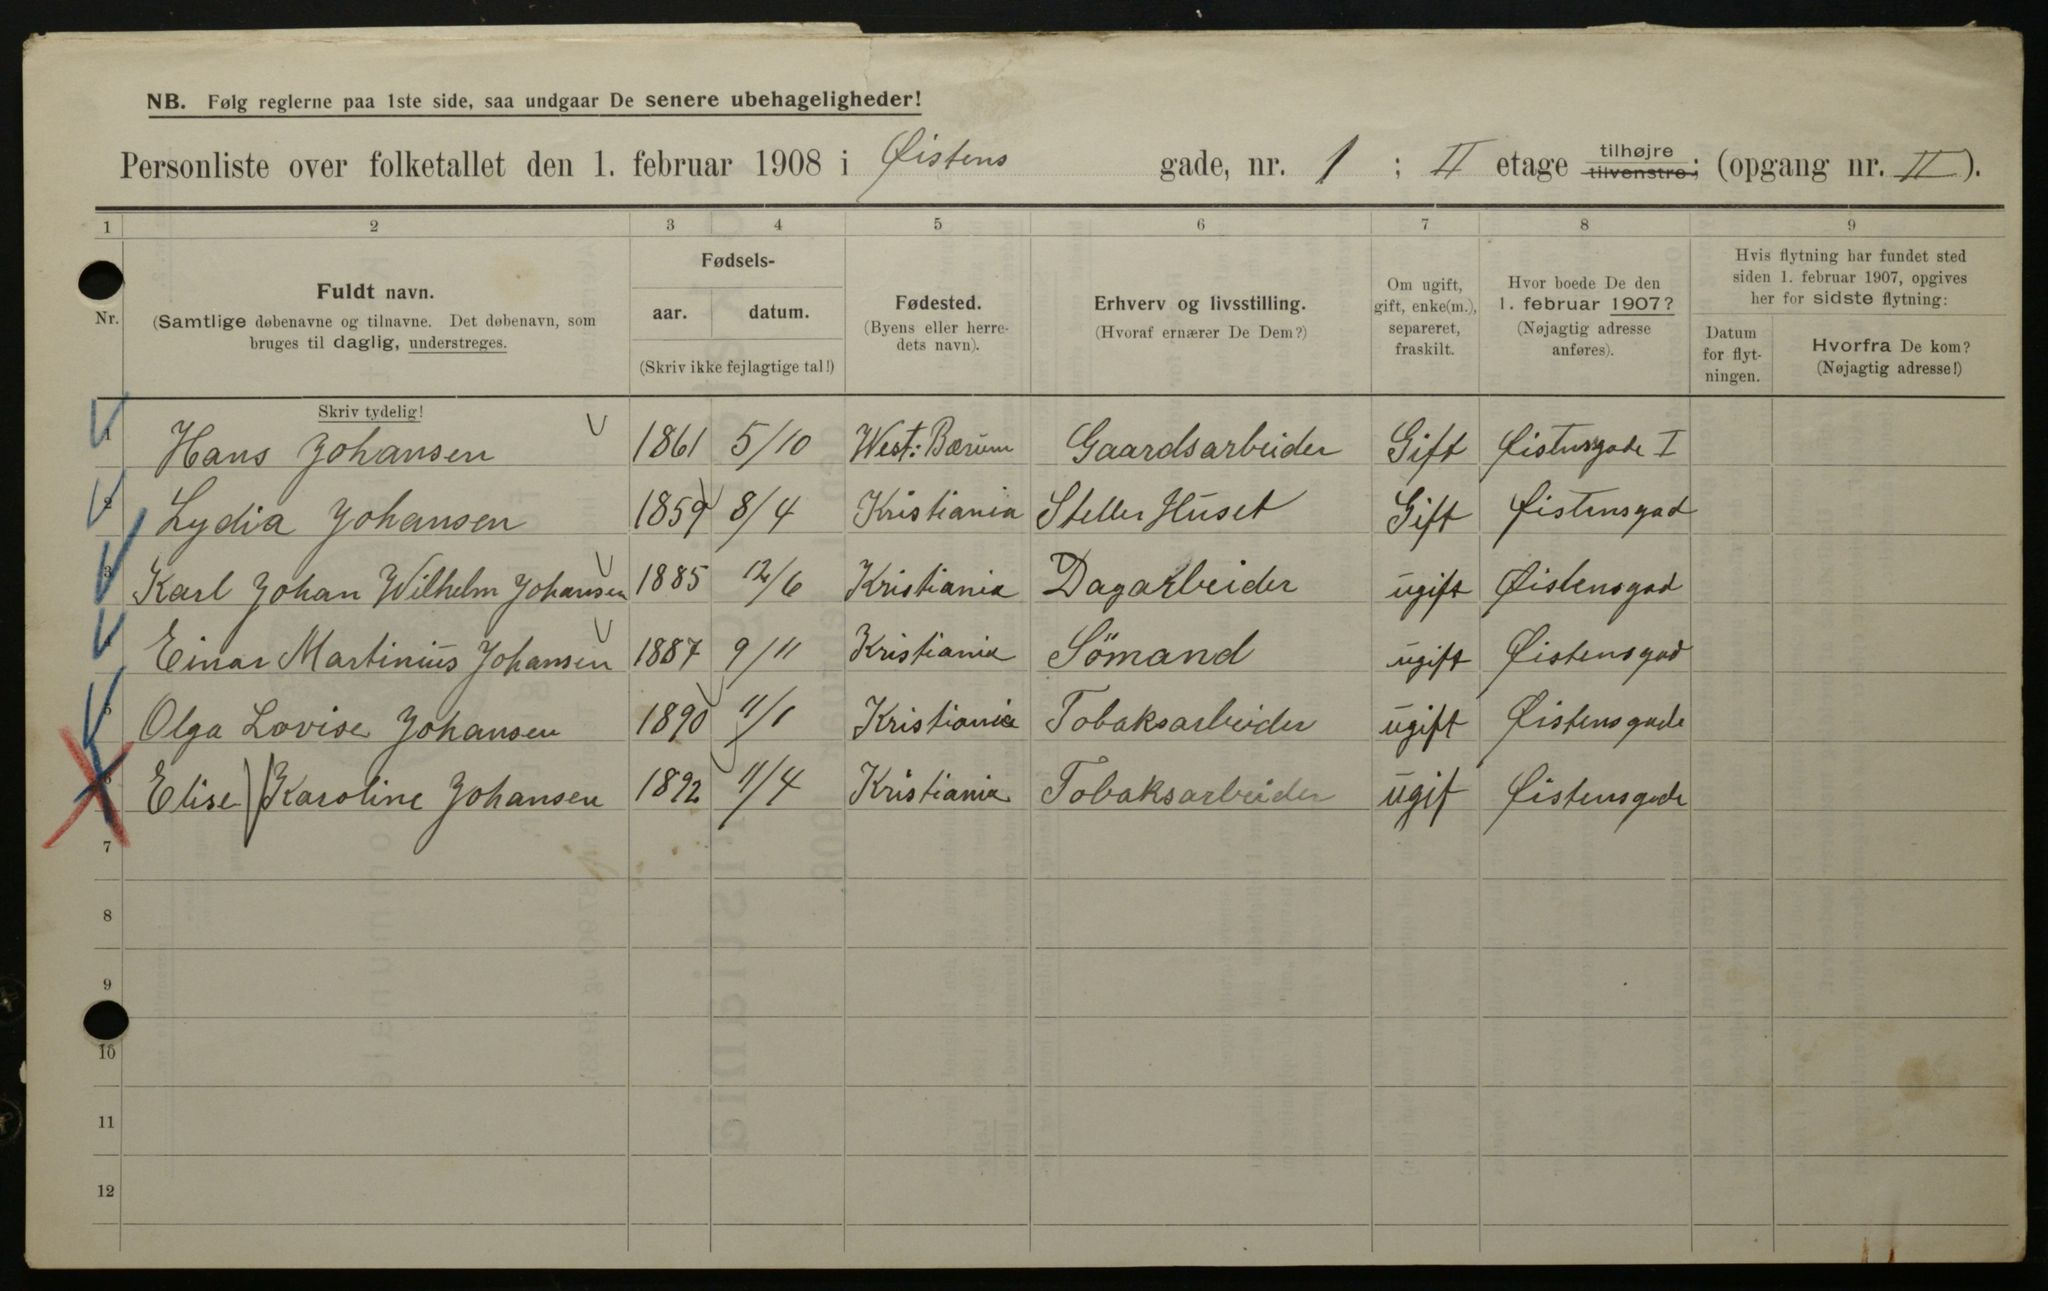 NB. Følg reglerne paa 1ste side, saa undgaar De senere ubehageligheder!
Personliste over folketallet den 1. februar 1908 i Øistens gade, nr. 1 ; II etage tilhøjre tilvenstre; (opgang nr. II).
1 2 3 4 5 6 7 8 9
Nr.
Fuldt navn.
(Samtlige døbenavne og tilnavne. Det døbenavn, som
bruges til daglig, understreges.
Skriv tydelig!
Fødsels-
aar. datum.
(Skriv ikke fejlagtige tal!)
Fødested.
(Byens eller herre-
dets navn).
Erhverv og livsstilling.
(Hvoraf ernærer De Dem?)
Om ugift,
gift, enke(m.),
separeret,
fraskilt.
Hvor boede De den
1. februar 1907?
(Nøjagtig adresse
anføres).
Hvis flytning har fundet sted
siden 1. februar 1907, opgives
her for sidste flytning:
Datum
for flyt-
ningen.
Hvorfra De kom?
(Nøjagtig adresse!)
1 Hans Johansen 1861 5/10 West: Bærum Gaardsarbeider Gift Øistensgade I
2 Lydia Johansen 1859 8/4 Kristiania Steller Huset Gift Øistensgad
3 Karl Johan Wilhelm Johansen 1885 12/6 Kristiania Dagarbeider ugift Øistensgad
4 Einar Martinius Johansen 1887 9/11 Kristiania Sömand ugift Øistensgad
5 Olga Lovise Johansen 1890 11/1 Kristiania Tobaksarbeider ugift Øistensgade
6 Elise Karoline Johansen 1892 11/4 Kristiania Tobaksarbeider ugif Øistensgade
7
8
9
10
11
12